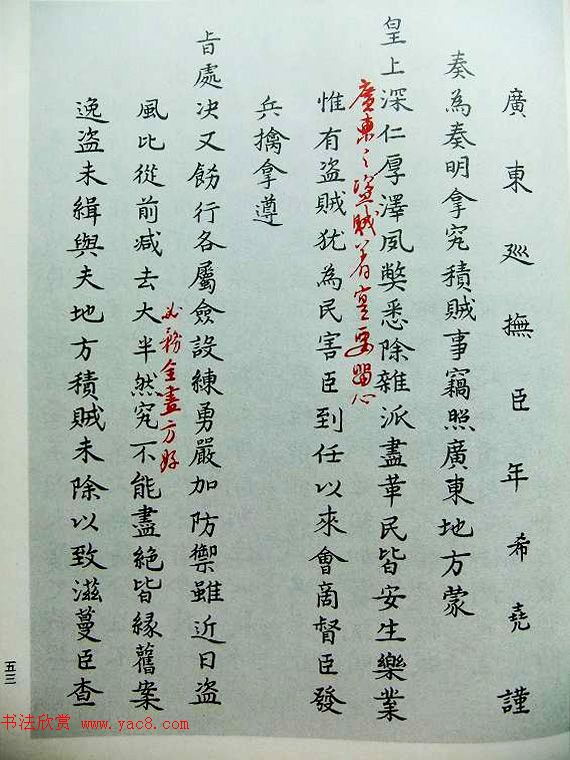 廣東巡撫臣年希堯謹
奏為奏明拿究積賊事竊照廣東地方蒙
皇上深仁厚澤夙獘悉除雜派盡革民皆安生樂業
廣東之盜賊著實要留心
惟有盜賊犹為民害臣到任以來會啇督臣發
兵擒拿遵
旨處决又飭行各屬僉設練勇嚴加防禦雖近日盜
必務全盡方好
風比從前减去大半然究不能盡絕皆緣舊案
逸盗未緝與夫地方積賊未除以致滋蔓臣查
五三
书法欣赏 www.yac8.com